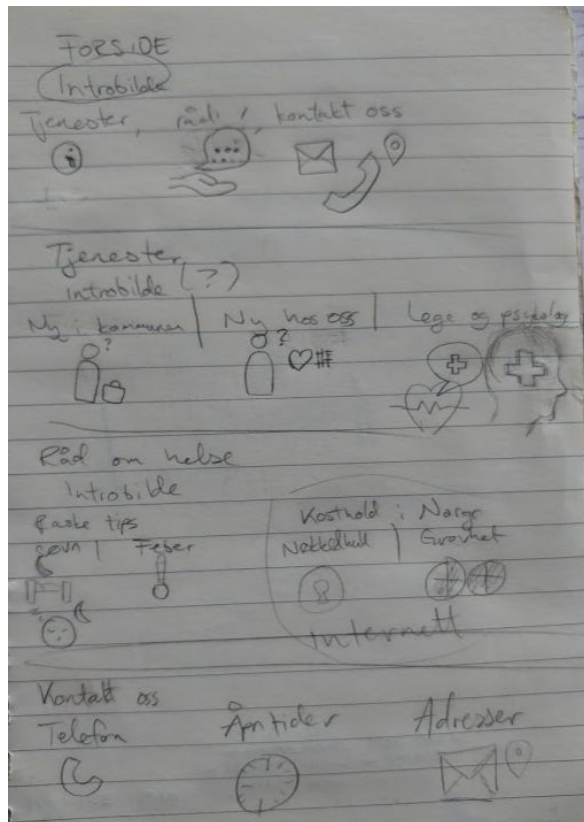 FORSIDE
Introbilde
Tjenester, råd, kontakt oss
Tjenester
introbilde (?)
Ny i kommunen | Ny hos oss | Lege og psykolog
Råd om helse
Introbilde
Raske tips
Kosthold i Norge
søvn | Feber
Nøkkelhull | Grovhet
internett
Kontakt oss
Telefon Åpntider Adresser